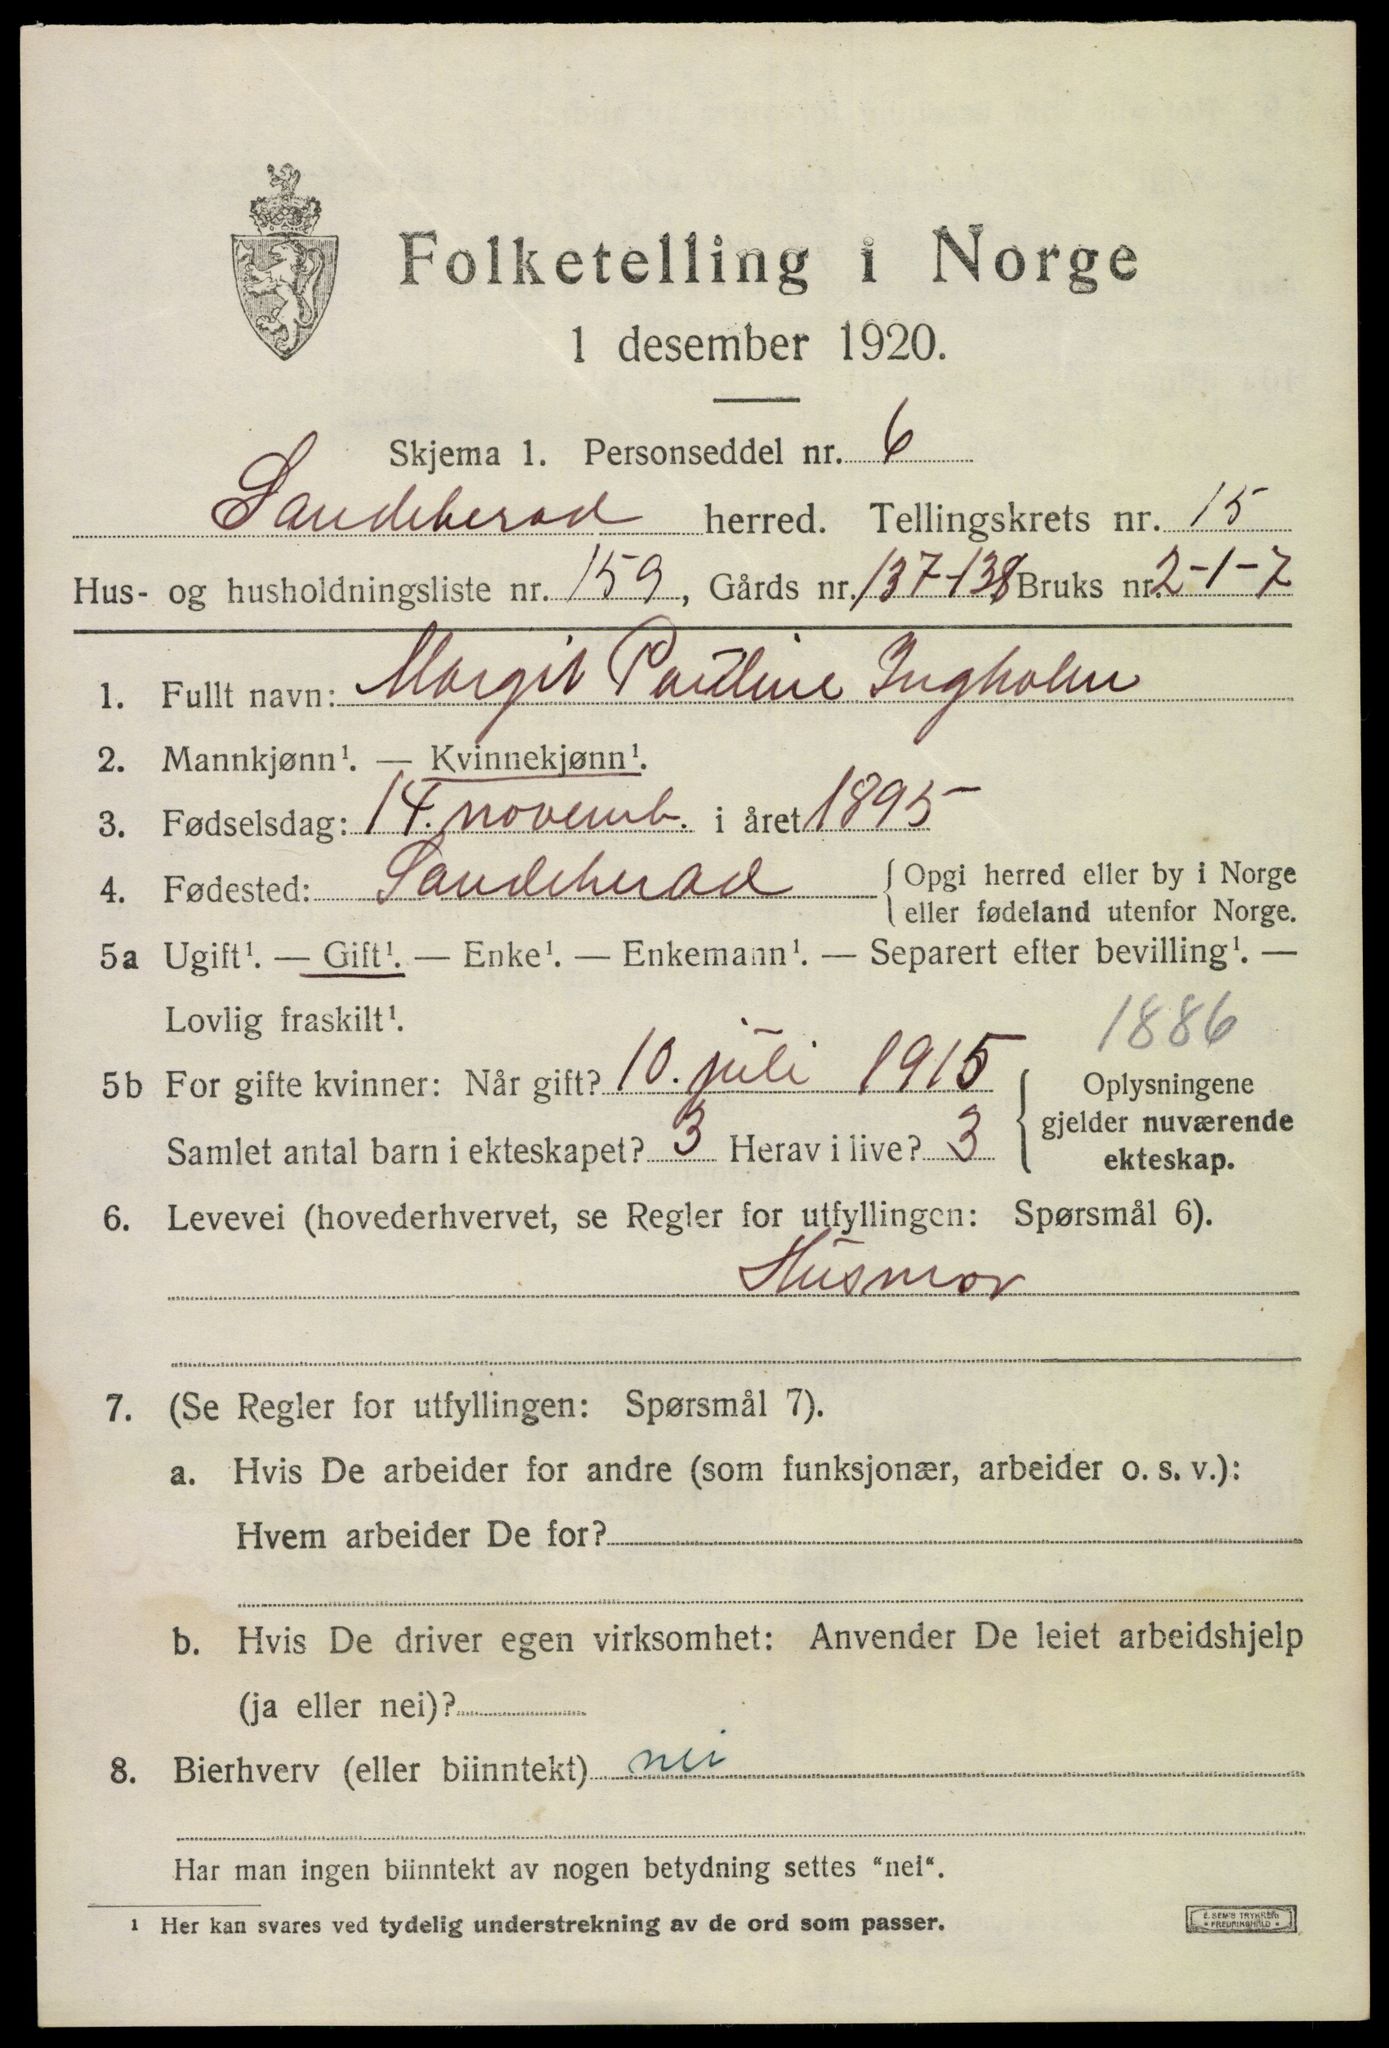 Folketelling i Norge
1 desember 1920.
Skjema 1. Personseddel nr. 6
Sandeherad herred. Tellingskrets nr. 15
Hus- og husholdningsliste nr. 159, Gårds nr. 137-138 Bruks nr. 2-1-7
1. Fullt navn: Margit Pauline Ingholm
2. Mannkjønn¹. — Kvinnekjønn¹.
3. Fødselsdag: 14. novemb. i året 1895
4. Fødested: Sandeherad { Opgi herred eller by i Norge
eller fødeland utenfor Norge.
5a Ugift¹. — Gift¹. — Enke¹. — Enkemann¹. — Separert efter bevilling¹. —
Lovlig fraskilt¹.
1886
5b For gifte kvinner: Når gift? 10. juli 1915 { Oplysningene
gjelder nuværende
Samlet antal barn i ekteskapet? 3 Herav i live? 3
ekteskap.
6. Levevei (hovederhvervet, se Regler for utfyllingen: Spørsmål 6).
Husmor
7. (Se Regler for utfyllingen: Spørsmål 7).
a. Hvis De arbeider for andre (som funksjonær, arbeider o. s. v.):
Hvem arbeider De for?
b. Hvis De driver egen virksomhet: Anvender De leiet arbeidshjelp
(ja eller nei)?
8. Bierhverv (eller biinntekt) nei
Har man ingen biinntekt av nogen betydning settes “nei“.
¹ Her kan svares ved tydelig understrekning av de ord som passer.
E. SEM'S TRYKKERI
• FREDRIKSHALD •